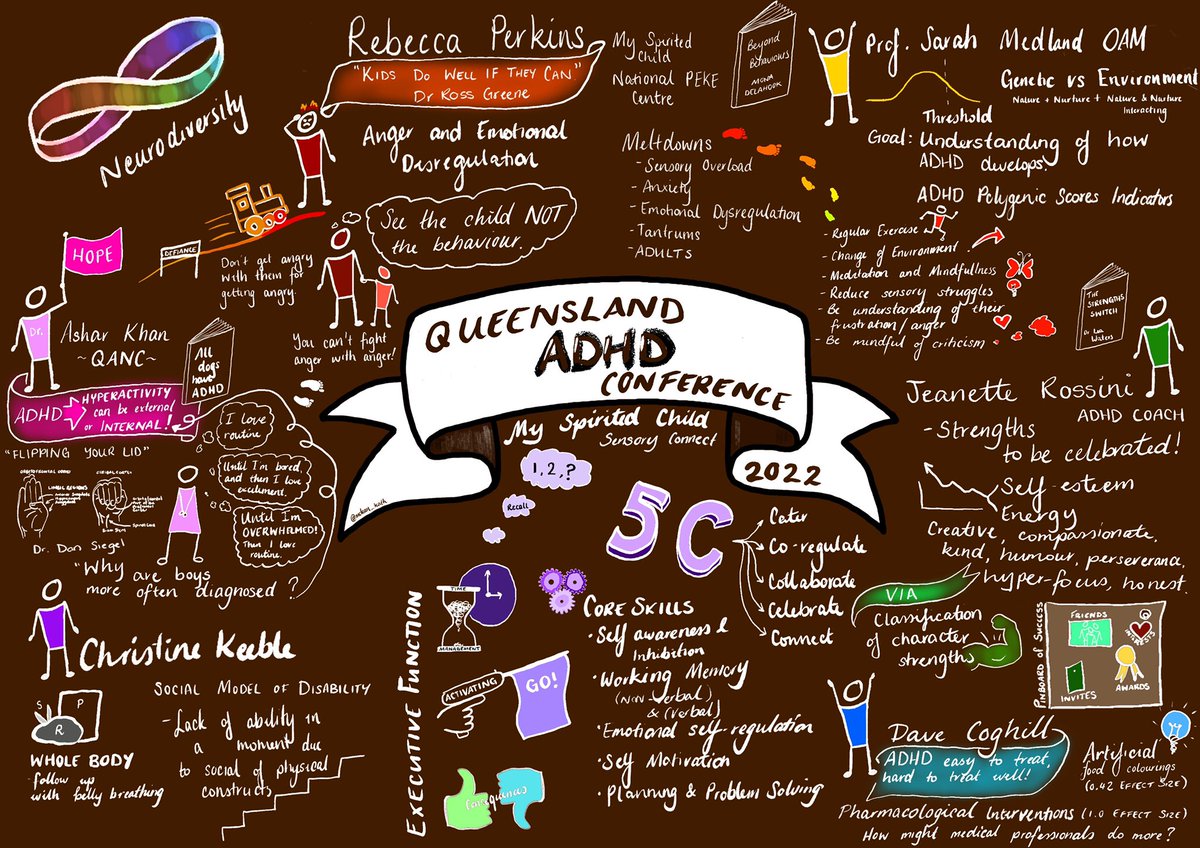 Neurodiversity
Rebecca Perkins
"KIDS DO WELL IF THEY CAN"
Dr Ross Greene
Anger and Emotional
Disregulation
See the child NOT
the behaviour.
DEFIANCE
Don't get angry
with them for
getting angry.
You can't fight
anger with anger!
My Spirited
Child
National PEKE
Centre
Beyond
Behaviours
MONA
DELAHOOK
Meltdowns
- Sensory Overload
- Anxiety
- Emotional Dysregulation
- Tantrums
- ADULTS
Prof. Sarah Medland OAM
Genetic vs Environment
Nature + Nurture + Nature & Nurture
Interacting
Threshold
Goal: Understanding of how
ADHD develops.
ADHD Polygenic Scores Indicators
- Regular Exercise
- Change of Environment
- Medetation and Mindfullness
- Reduce sensory struggles
- Be understanding of their
frustration/anger
- Be mindful of criticism
THE
STRENGTHS
SWITCH
Dr Lea
Waters
HOPE
Dr.
Ashar Khan
~QANC~
All
dogs
have
ADHD
ADHD
HYPERACTIVITY
can be external
or INTERNAL!
"FLIPPING YOUR LID"
LIMBIC REGIONS
Dr. Dan Siegel
I love
routine
Until I'm bored,
and then I love
excitement.
Until I'm
OVERWHELMED!
Then I love
routine.
"Why are boys
more often diagnosed?
QUEENSLAND
ADHD
CONFERENCE
2022
My Spirited Child
Sensory Connect
1, 2, ?
Recall
5C
Cater
Co-regulate
Collaborate
Celebrate
Connect
Jeanette Rossini
ADHD COACH
- Strengths
to be celebrated!
Self-esteem
Energy
Creative, compassionate,
kind, humour, perseverance,
hyper-focus, honest.
VIA
Classification
of character
strengths
PINBOARD OF SUCCESS
FRIENDS
INTERESTS
INVITES
AWARDS
Christine Keeble
S
P
R
WHOLE BODY
follow up
with belly breathing
SOCIAL MODEL OF DISABILITY
- Lack of ability in
a moment due
to social of physical
constructs
EXECUTIVE FUNCTION
TIME
MANAGEMENT
ACTIVATING
GO!
Consequences
CORE SKILLS
• Self awareness &
Inhibition
• Working Memory
(non-verbal)
& (verbal)
• Emotional self-regulation
• Self Motivation
• Planning & Problem Solving
Dave Coghill
ADHD easy to treat,
hard to treat well!
Artificial
food colourings
(0.42 EFFECT SIZE)
Pharmacological Interventions (1.0 EFFECT SIZE)
How might medical professionals do more?